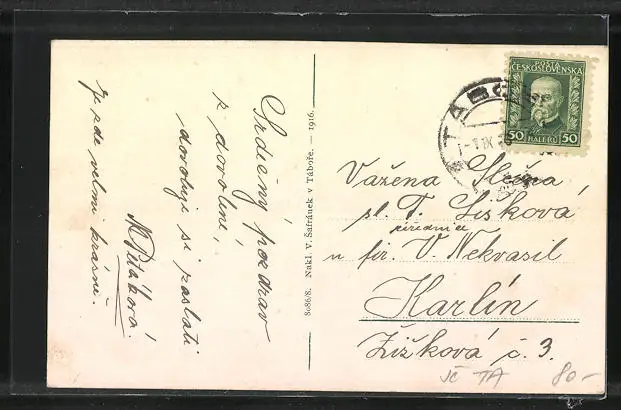 Srdečný pozdrav
z dovolené,
dovoluje si zaslati
M. Pitáková.
Je zde velmi krásně.
8086/8. Nakl. V. Šafránek v Táboře. — 1916.
POŠTA
ČESKOSLOVENSKÁ
50 HALÉŘŮ 50
TÁBOR
Vážená Slečna
sl. T. Zisková
úřednice
u fir. V. Nekvasil
Karlín
Žižková č. 3.
JČ TA 80-